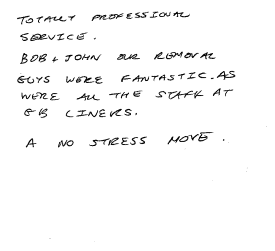 TOTALLY PROFESSIONAL
SERVICE.
BOB & JOHN OUR REMOVAL
GUYS WERE FANTASTIC. AS
WERE ALL THE STAFF AT
GB LINERS.
A NO STRESS MOVE.